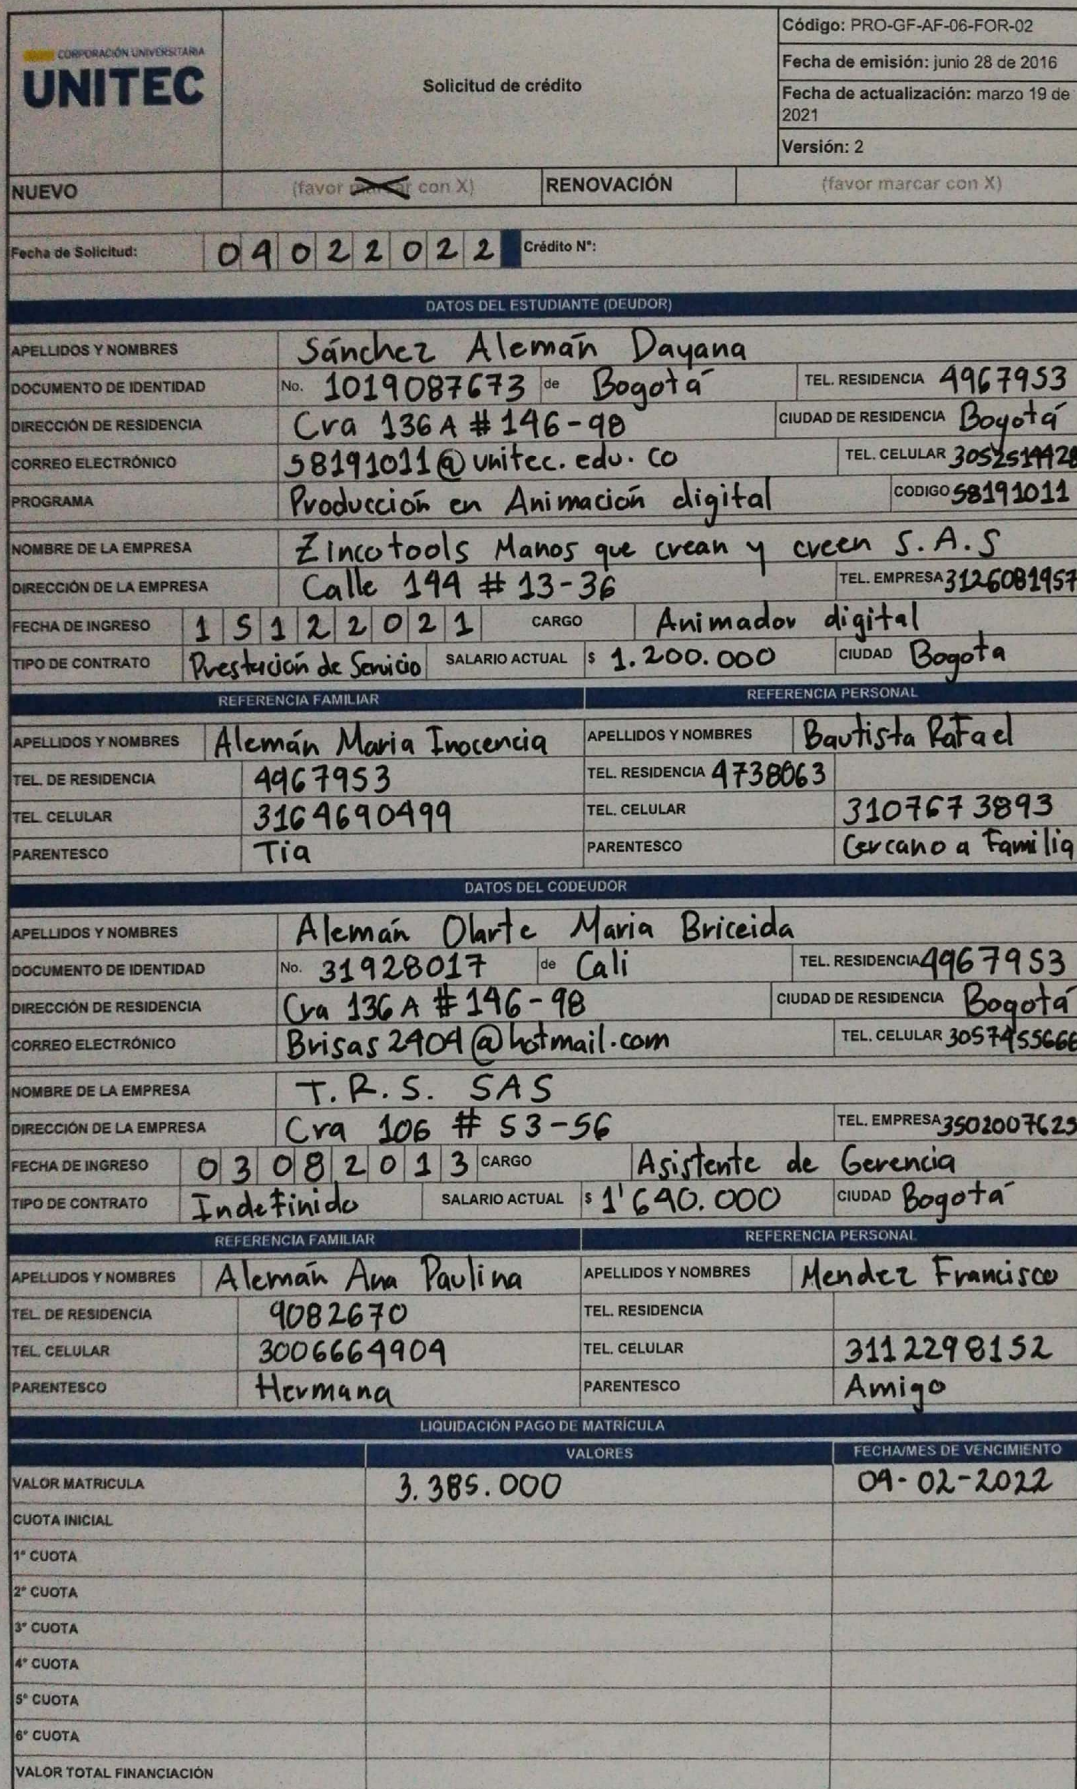 CORPORACIÓN UNIVERSITARIA
UNITEC
Solicitud de crédito
Código: PRO-GF-AF-06-FOR-02
Fecha de emisión: junio 28 de 2016
Fecha de actualización: marzo 19 de
2021
Versión: 2
NUEVO (favor marcar con X) RENOVACIÓN (favor marcar con X)
Fecha de Solicitud: 04022022 Crédito N°:
DATOS DEL ESTUDIANTE (DEUDOR)
APELLIDOS Y NOMBRES Sánchez Alemán Dayana
DOCUMENTO DE IDENTIDAD No. 1019087673 de Bogotá TEL. RESIDENCIA 4967953
DIRECCIÓN DE RESIDENCIA Cra 136 A # 146-98 CIUDAD DE RESIDENCIA Bogotá
CORREO ELECTRÓNICO 58191011@unitec.edu.co TEL. CELULAR 3052514428
PROGRAMA Producción en Animación digital CODIGO 58191011
NOMBRE DE LA EMPRESA Zincotools Manos que crean y creen S.A.S
DIRECCIÓN DE LA EMPRESA Calle 144 # 13-36 TEL. EMPRESA 3126081957
FECHA DE INGRESO 15122021 CARGO Animador digital
TIPO DE CONTRATO Prestación de Servicio SALARIO ACTUAL $ 1.200.000 CIUDAD Bogota
REFERENCIA FAMILIAR REFERENCIA PERSONAL
APELLIDOS Y NOMBRES Alemán Maria Inocencia APELLIDOS Y NOMBRES Bautista Rafael
TEL. DE RESIDENCIA 4967953 TEL. RESIDENCIA 4738063
TEL. CELULAR 3164690499 TEL. CELULAR 3107673893
PARENTESCO Tia PARENTESCO Cercano a Familia
DATOS DEL CODEUDOR
APELLIDOS Y NOMBRES Alemán Olarte Maria Briceida
DOCUMENTO DE IDENTIDAD No. 31928017 de Cali TEL. RESIDENCIA 4967953
DIRECCIÓN DE RESIDENCIA Cra 136 A # 146-98 CIUDAD DE RESIDENCIA Bogotá
CORREO ELECTRÓNICO Brisas2404@hotmail.com TEL. CELULAR 3057455666
NOMBRE DE LA EMPRESA T.R.S. SAS
DIRECCIÓN DE LA EMPRESA Cra 106 # 53-56 TEL. EMPRESA 3502007625
FECHA DE INGRESO 03082013 CARGO Asistente de Gerencia
TIPO DE CONTRATO Indefinido SALARIO ACTUAL $ 1'640.000 CIUDAD Bogotá
REFERENCIA FAMILIAR REFERENCIA PERSONAL
APELLIDOS Y NOMBRES Alemán Ana Paulina APELLIDOS Y NOMBRES Mendez Francisco
TEL. DE RESIDENCIA 9082670 TEL. RESIDENCIA
TEL. CELULAR 3006664904 TEL. CELULAR 3112298152
PARENTESCO Hermana PARENTESCO Amigo
LIQUIDACIÓN PAGO DE MATRÍCULA
VALORES FECHA/MES DE VENCIMIENTO
VALOR MATRICULA 3.385.000 09-02-2022
CUOTA INICIAL
1ª CUOTA
2ª CUOTA
3ª CUOTA
4ª CUOTA
5ª CUOTA
6ª CUOTA
VALOR TOTAL FINANCIACIÓN